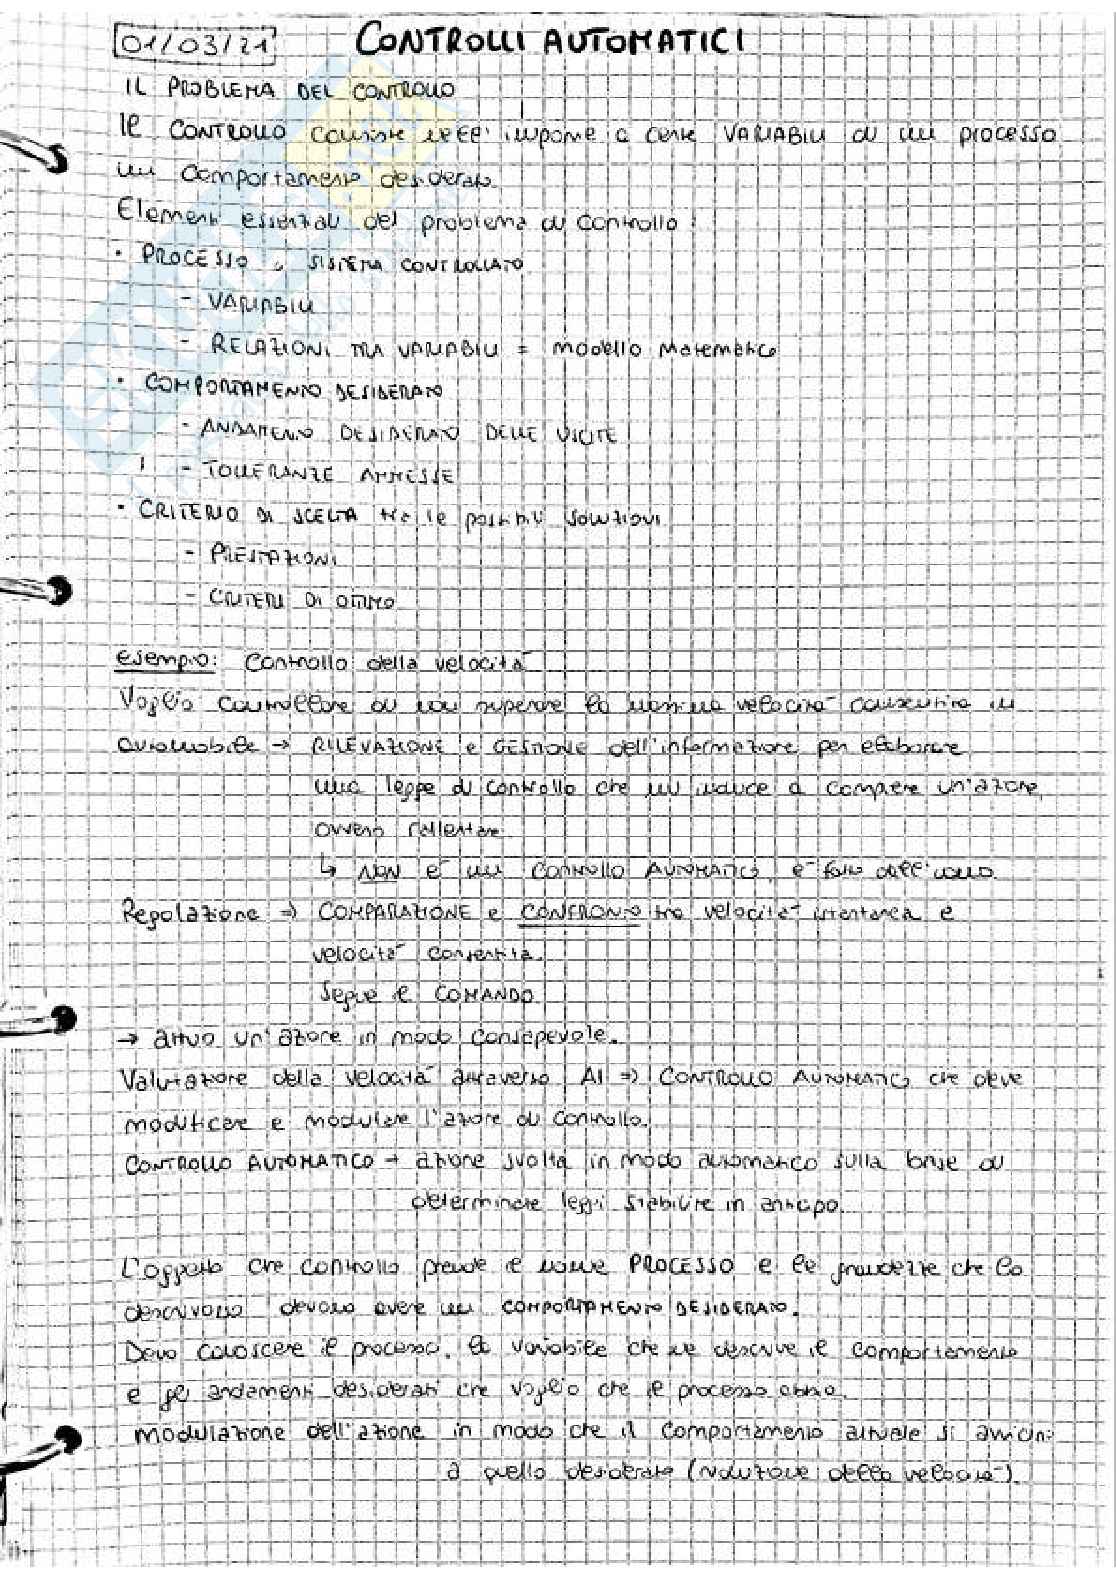 01/03/21 CONTROLLI AUTOMATICI
IL PROBLEMA DEL CONTROLLO
Il CONTROLLO consiste nell'imporre a certe VARIABILI di un processo
un comportamento desiderato.
Elementi essenziali del problema di controllo:
• PROCESSO o SISTEMA CONTROLLATO
- VARIABILI
- RELAZIONI TRA VARIABILI = modello matematico
• COMPORTAMENTO DESIDERATO
- ANDAMENTO DESIDERATO DELLE USCITE
- TOLLERANZE AMMESSE
• CRITERIO DI SCELTA tra le possibili soluzioni
- PRESTAZIONI
- CRITERI DI OTTIMO
Esempio: Controllo della velocità
Voglio controllare di non superare la massima velocità consentita in
automobile → RILEVAZIONE e GESTIONE dell'informazione per elaborare
una legge di controllo che mi induce a compiere un'azione,
ovvero rallentare.
↳ NON è un CONTROLLO AUTOMATICO, è fatto dall'uomo.
Regolazione ⇒ COMPARAZIONE e CONFRONTO tra velocità istantanea e
velocità consentita.
Segue il COMANDO
→ attuo un'azione in modo consapevole.
Valutazione della velocità attraverso AI ⇒ CONTROLLO AUTOMATICO che deve
modificare e modulare l'azione di controllo.
CONTROLLO AUTOMATICO → azione svolta in modo automatico sulla base di
determinate leggi stabilite in anticipo.
L'oggetto che controllo prende il nome PROCESSO e le grandezze che lo
descrivono devono avere un COMPORTAMENTO DESIDERATO.
Devo conoscere il processo, la variabile che ne descrive il comportamento
e gli andamenti desiderati che voglio che il processo abbia.
Modulazione dell'azione in modo che il comportamento attuale si avvicini
a quello desiderato (riduzione della velocità).